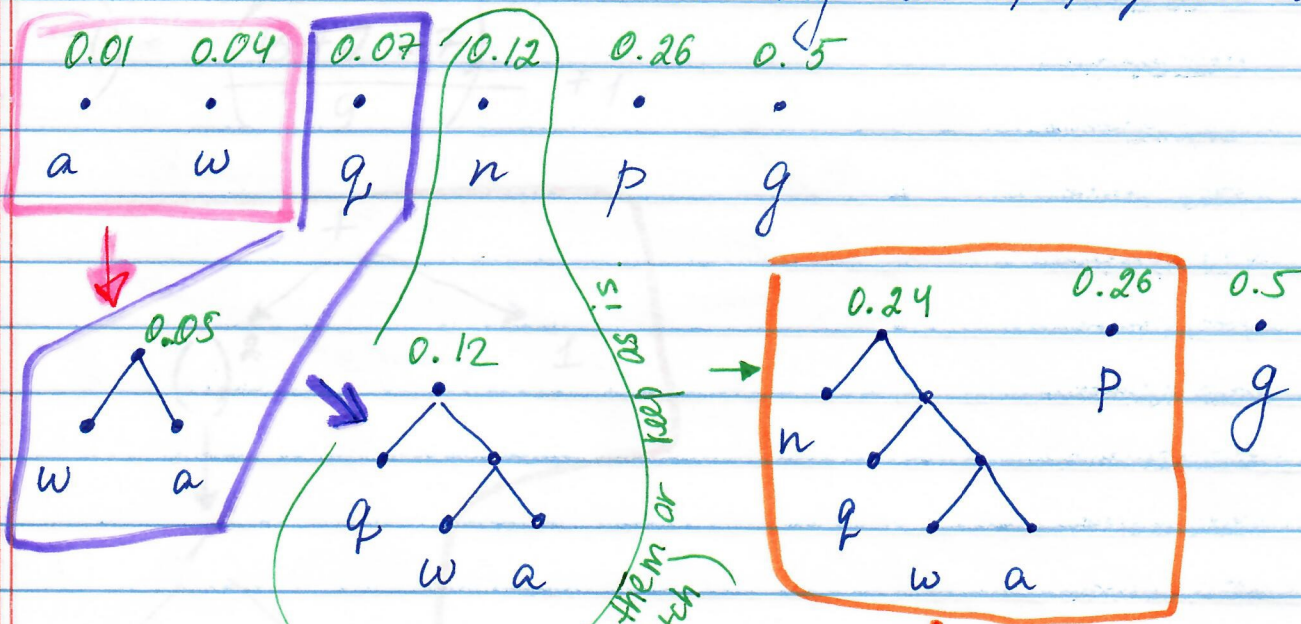 0.01 0.04 0.07 0.12 0.26 0.5
a w q n p g
0.05
w a
0.12
q
w a
them or keep as is.
0.24 0.26 0.5
n p g
q
w a